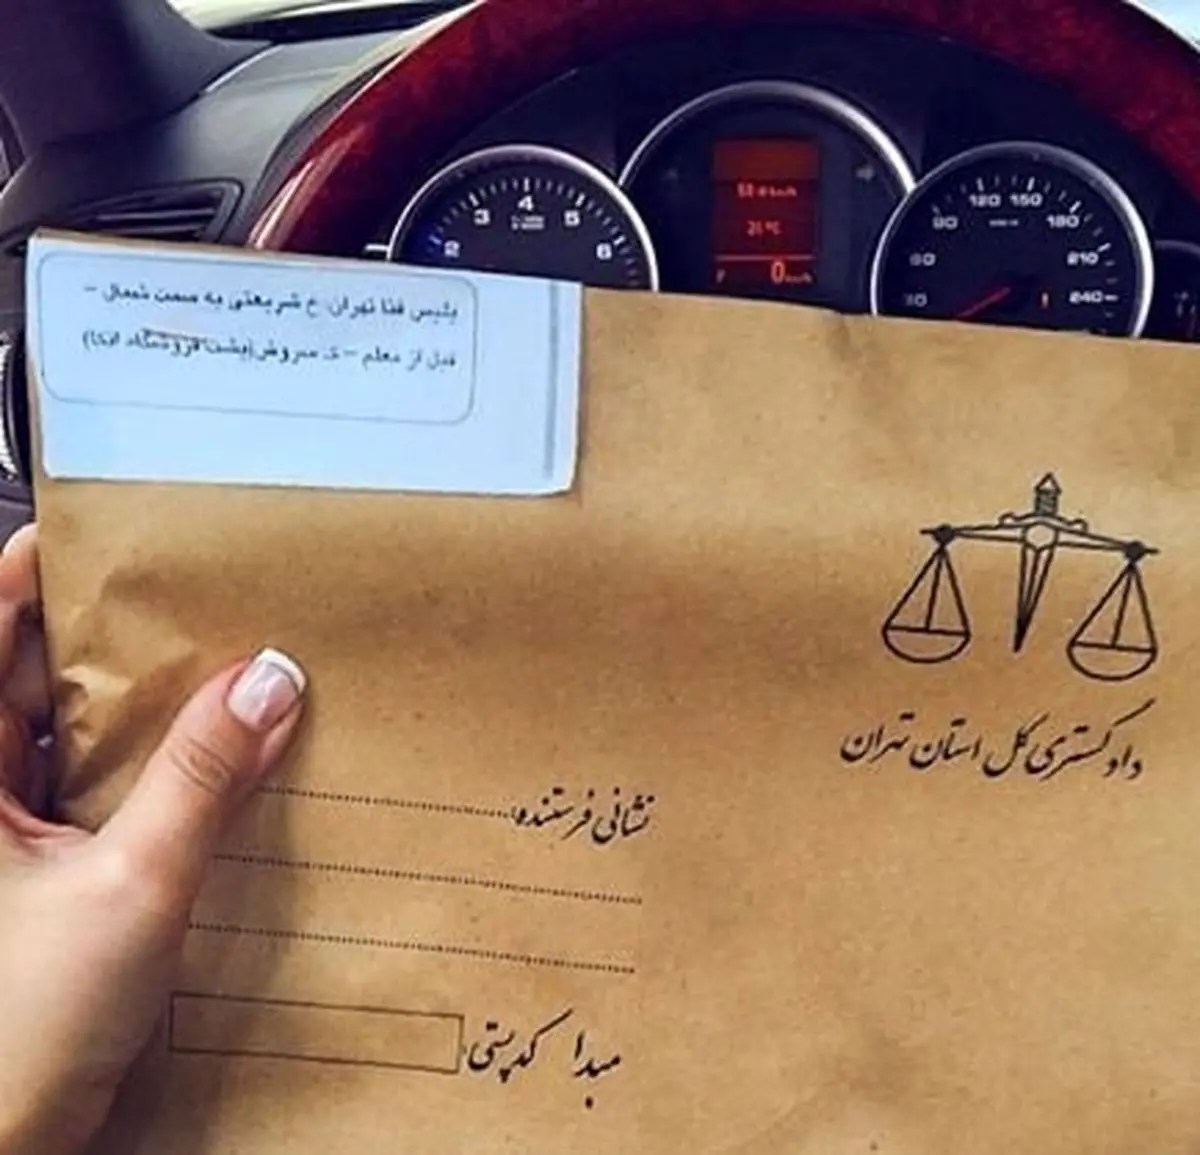 پلیس فتا تهران: خ شریعتی به سمت شمال –
قبل از معلم – خ سروش(پشت فروشگاه اتکا)
دادگستری کل استان تهران
نشانی فرستنده:
کدپستی مبدا
2
3
4
5
6
21 °C
0 km/h
30
60
90
120
150
180
210
240